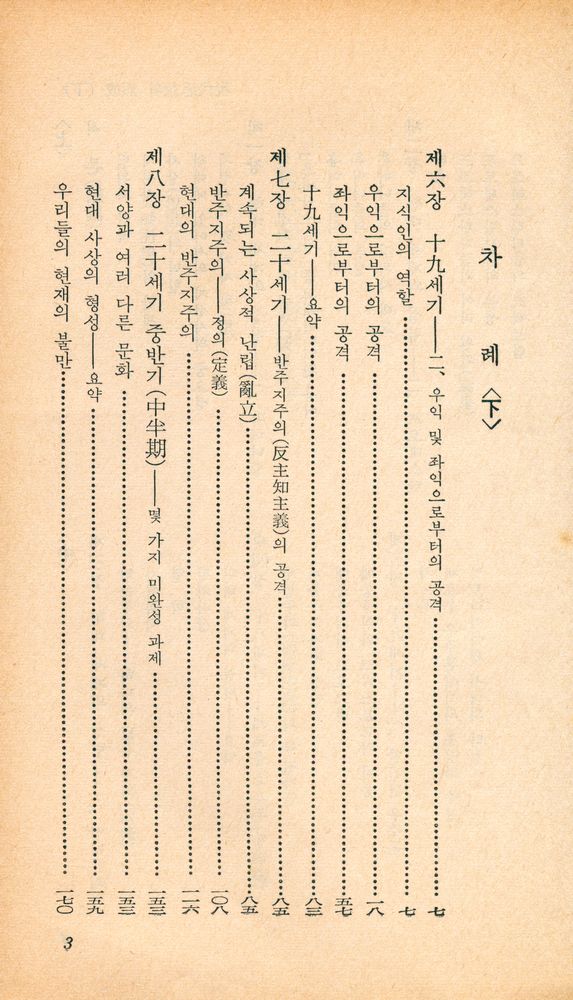 차 례 〈下〉
제六장 十九세기――二、우익 및 좌익으로부터의 공격……七
지식인의 역할……七
우익으로부터의 공격……一八
좌익으로부터의 공격……五七
十九세기――요약……八三
제七장 二十세기――반주지주의(反主知主義)의 공격……八五
계속되는 사상적 난립(亂立)……八五
반주지주의――정의(定義)……一〇八
현대의 반주지주의……一一六
제八장 二十세기 중반기(中半期)――몇 가지 미완성 과제……一五三
서양과 여러 다른 문화……一五三
현대 사상의 형성――요약……一五九
우리들의 현재의 불만……一七〇
3